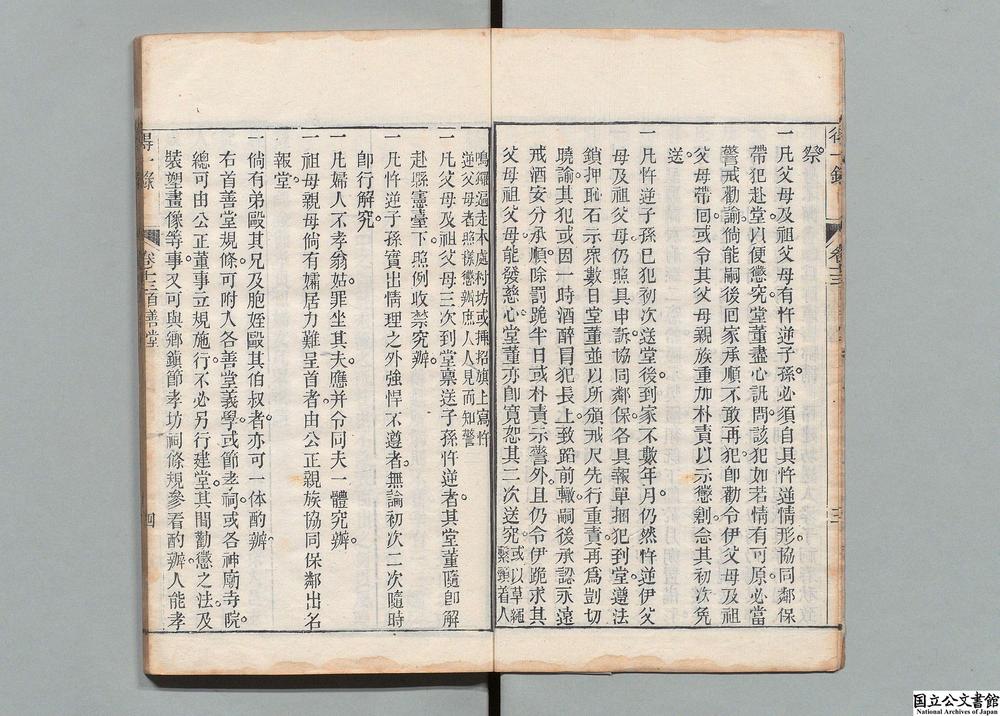 得一錄 卷十三 三
祭
一凡父母及祖父母有忤逆子孫必須自具忤逆情形協同鄰保
帶犯赴堂以便懲究堂董盡心訊問該犯如若情有可原必當
警戒勸諭倘能嗣後回家承順不敢再犯卽勸令伊父母及祖
父母帶回或令其父母親族重加朴責以示懲創念其初次免
送
一凡忤逆子孫已犯初次送堂後到家不數年月仍然忤逆伊父
母及祖父母仍照具申訴協同鄰保各具報單捆犯到堂遵法
鎖押恥石示衆數日堂董並以所頒戒尺先行重責再爲剴切
曉諭其犯或因一時酒醉冒犯長上致蹈前轍嗣後承認永遠
戒酒安分承順除罰跪半日或朴責示警外且仍令伊跪求其
父母祖父母能發慈心堂董亦卽寬恕其二次送究或以草繩
繫頸着人
鳴鑼遍走本處村坊或揷招旗上寫忤
逆父母者照樣懲辦庶人人見而知警
一凡父母及祖父母三次到堂禀送子孫忤逆者其堂董隨卽解
赴縣憲臺下照例收禁究辦
一凡忤逆子孫實出情理之外強悍不遵者無論初次二次隨時
卽行解究
一凡婦人不孝翁姑罪坐其夫應并令同夫一體究辦
一祖母親母倘有孀居力難呈首者由公正親族協同保鄰出名
報堂
一倘有弟毆其兄及胞姪毆其伯叔者亦可一体酌辦
右首善堂規條可附入各善堂義學或節孝祠或各神廟寺院
總可由公正董事立規施行不必另行建堂其間勸懲之法及
裝塑畫像等事又可與鄉鎮節孝坊祠條規參看酌辦人能孝
得一錄 卷十三首善堂 四
国立公文書館
National Archives of Japan